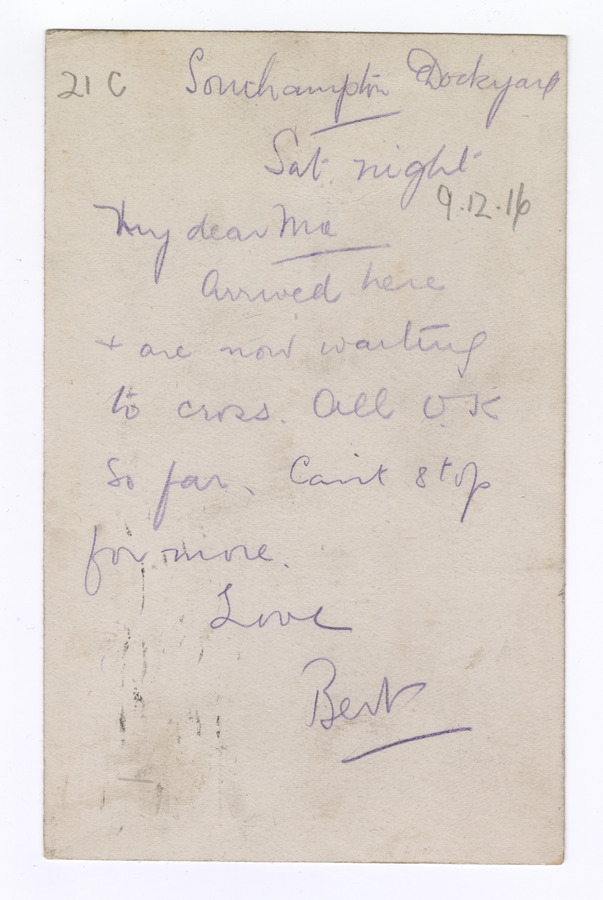 21 C Southampton Dockyard
Sat. night
9.12.16
My dear Ma
Arrived here
+ are now waiting
to cross. All O.K
so far. Can't stop
for more.
Love
Bert